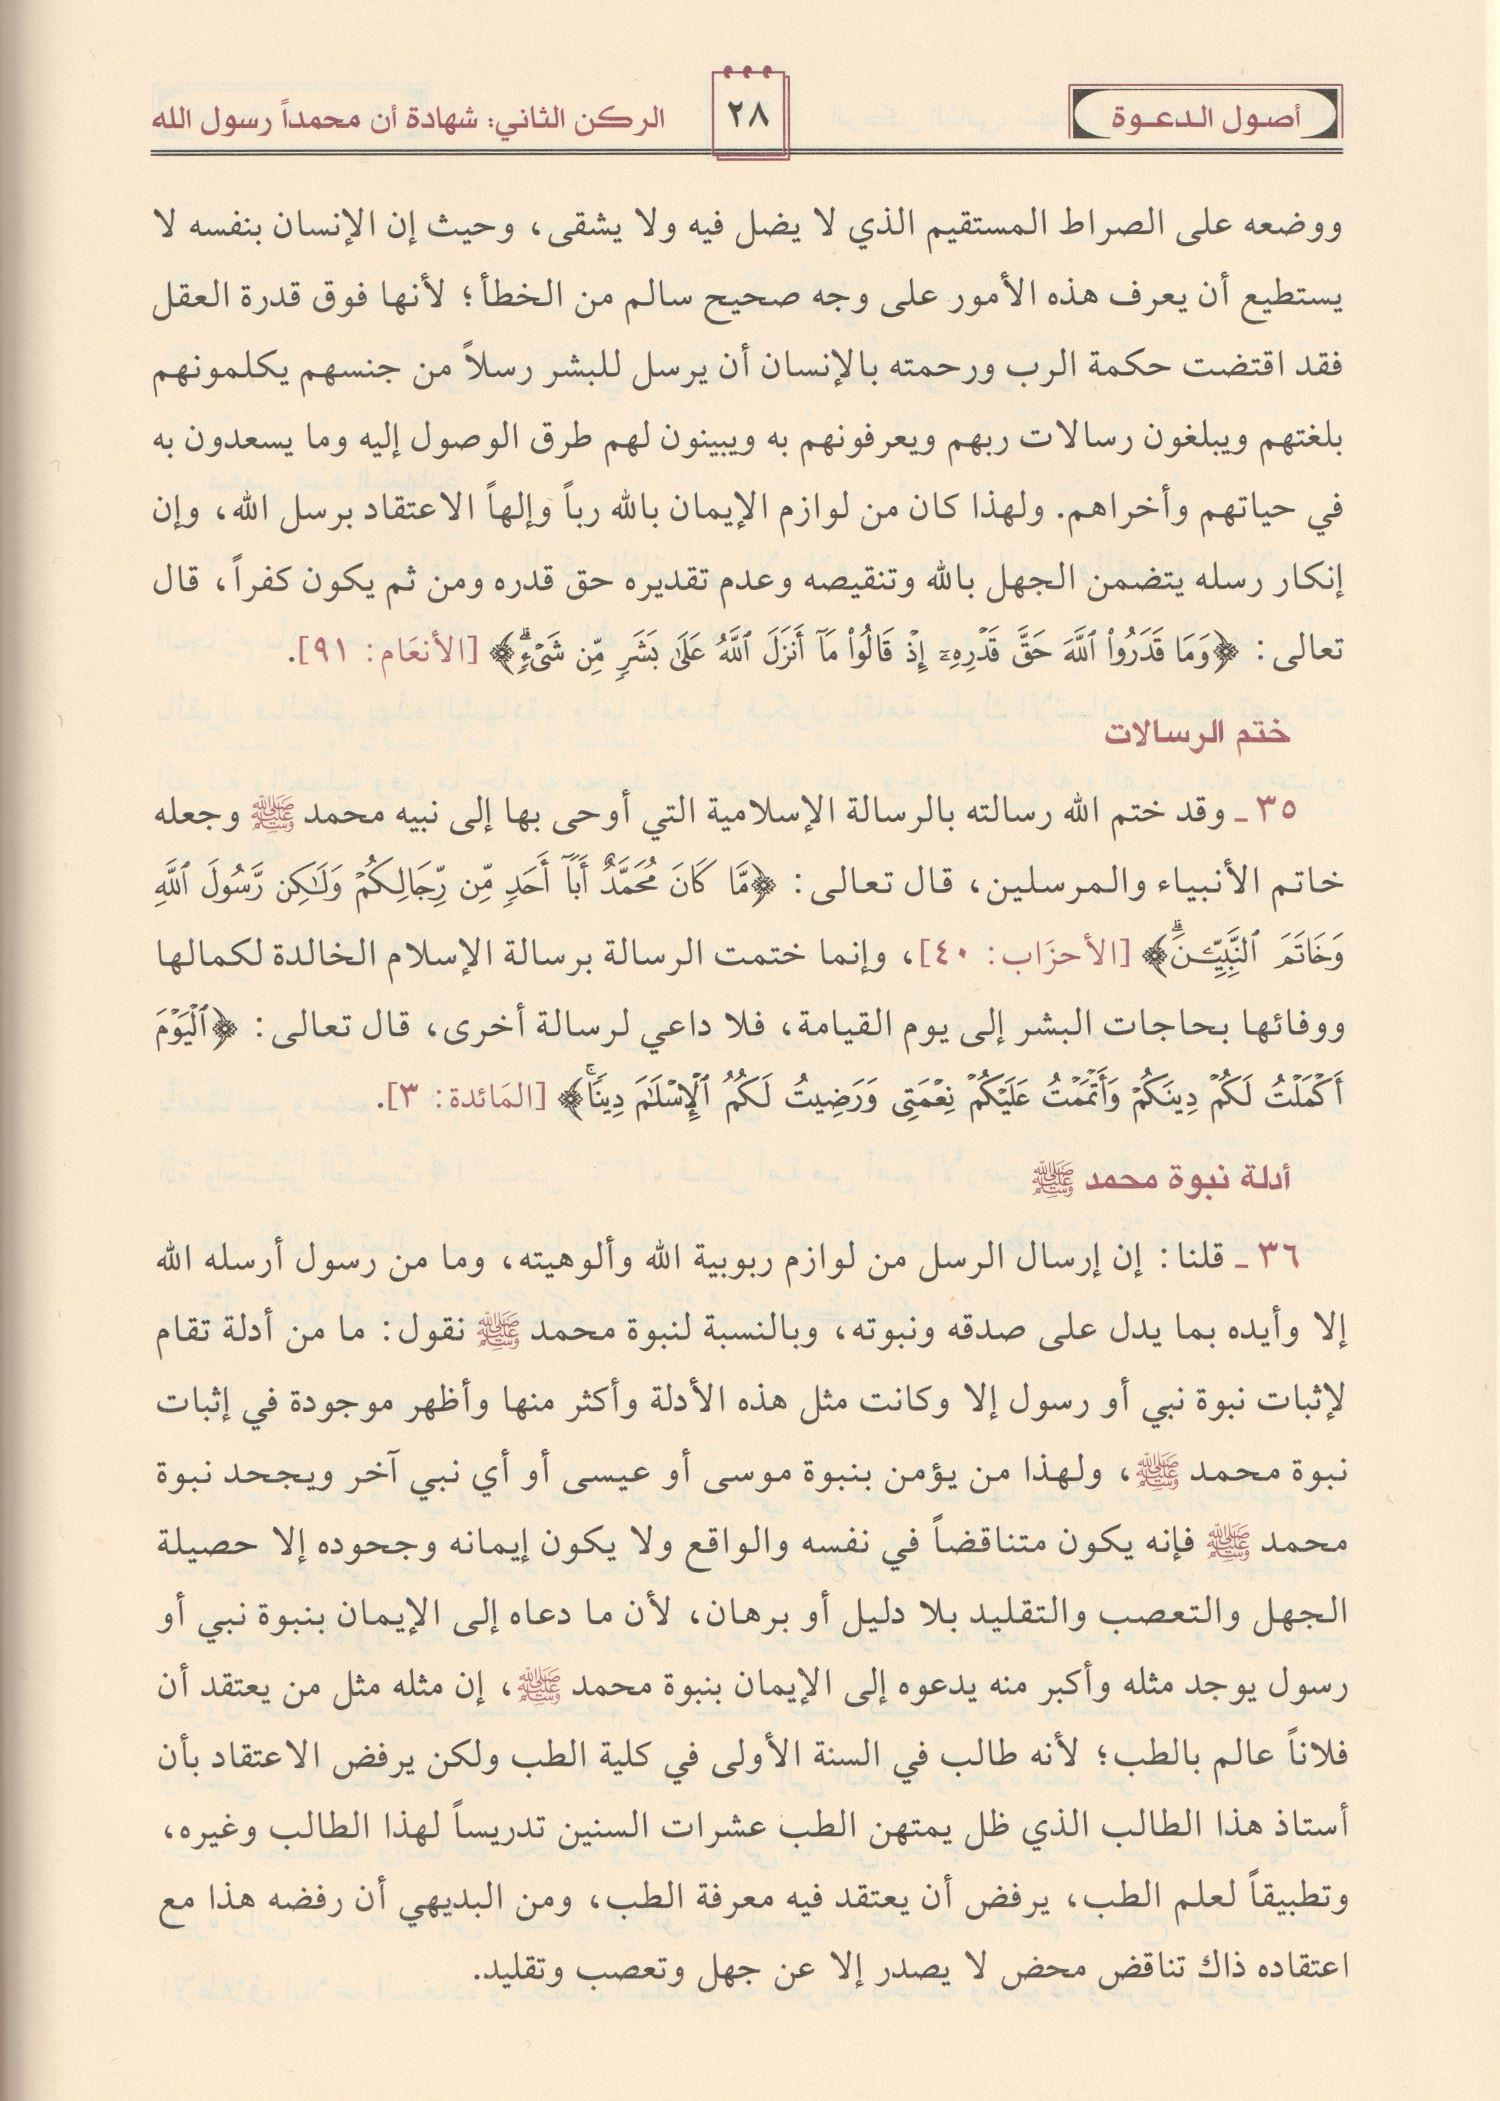 أصول الدعوة ٢٨ الركن الثاني: شهادة أن محمداً رسول الله
ووضعه على الصراط المستقيم الذي لا يضل فيه ولا يشقى، وحيث إن الإنسان بنفسه لا
يستطيع أن يعرف هذه الأمور على وجه صحيح سالم من الخطأ؛ لأنها فوق قدرة العقل
فقد اقتضت حكمة الرب ورحمته بالإنسان أن يرسل للبشر رسلاً من جنسهم يكلمونهم
بلغتهم ويبلغون رسالات ربهم ويعرفونهم به ويبينون لهم طرق الوصول إليه وما يسعدون به
في حياتهم وأخراهم. ولهذا كان من لوازم الإيمان بالله رباً وإلهاً الاعتقاد برسل الله، وإن
إنكار رسله يتضمن الجهل بالله وتنقيصه وعدم تقديره حق قدره ومن ثم يكون كفراً، قال
تعالى: ﴿وَمَا قَدَرُوا۟ ٱللَّهَ حَقَّ قَدْرِهِۦٓ إِذْ قَالُوا۟ مَآ أَنزَلَ ٱللَّهُ عَلَىٰ بَشَرٍ مِّن شَىْءٍ ۗ﴾ [الأنعَام: ٩١].
ختم الرسالات
٣٥ ـ وقد ختم الله رسالته بالرسالة الإسلامية التي أوحى بها إلى نبيه محمد ﷺ وجعله
خاتم الأنبياء والمرسلين، قال تعالى: ﴿مَّا كَانَ مُحَمَّدٌ أَبَآ أَحَدٍ مِّن رِّجَالِكُمْ وَلَٰكِن رَّسُولَ ٱللَّهِ
وَخَاتَمَ ٱلنَّبِيِّـۧنَ ۗ﴾ [الأحزَاب: ٤٠]، وإنما ختمت الرسالة برسالة الإسلام الخالدة لكمالها
ووفائها بحاجات البشر إلى يوم القيامة، فلا داعي لرسالة أخرى، قال تعالى: ﴿ٱلْيَوْمَ
أَكْمَلْتُ لَكُمْ دِينَكُمْ وَأَتْمَمْتُ عَلَيْكُمْ نِعْمَتِى وَرَضِيتُ لَكُمُ ٱلْإِسْلَٰمَ دِينًا ۚ﴾ [المَائدة: ٣].
أدلة نبوة محمد ﷺ
٣٦ ـ قلنا: إن إرسال الرسل من لوازم ربوبية الله وألوهيته، وما من رسول أرسله الله
إلا وأيده بما يدل على صدقه ونبوته، وبالنسبة لنبوة محمد ﷺ نقول: ما من أدلة تقام
لإثبات نبوة نبي أو رسول إلا وكانت مثل هذه الأدلة وأكثر منها وأظهر موجودة في إثبات
نبوة محمد ﷺ، ولهذا من يؤمن بنبوة موسى أو عيسى أو أي نبي آخر ويجحد نبوة
محمد ﷺ فإنه يكون متناقضاً في نفسه والواقع ولا يكون إيمانه وجحوده إلا حصيلة
الجهل والتعصب والتقليد بلا دليل أو برهان، لأن ما دعاه إلى الإيمان بنبوة نبي أو
رسول يوجد مثله وأكبر منه يدعوه إلى الإيمان بنبوة محمد ﷺ، إن مثله مثل من يعتقد أن
فلاناً عالم بالطب؛ لأنه طالب في السنة الأولى في كلية الطب ولكن يرفض الاعتقاد بأن
أستاذ هذا الطالب الذي ظل يمتهن الطب عشرات السنين تدريساً لهذا الطالب وغيره،
وتطبيقاً لعلم الطب، يرفض أن يعتقد فيه معرفة الطب، ومن البديهي أن رفضه هذا مع
اعتقاده ذاك تناقض محض لا يصدر إلا عن جهل وتعصب وتقليد.